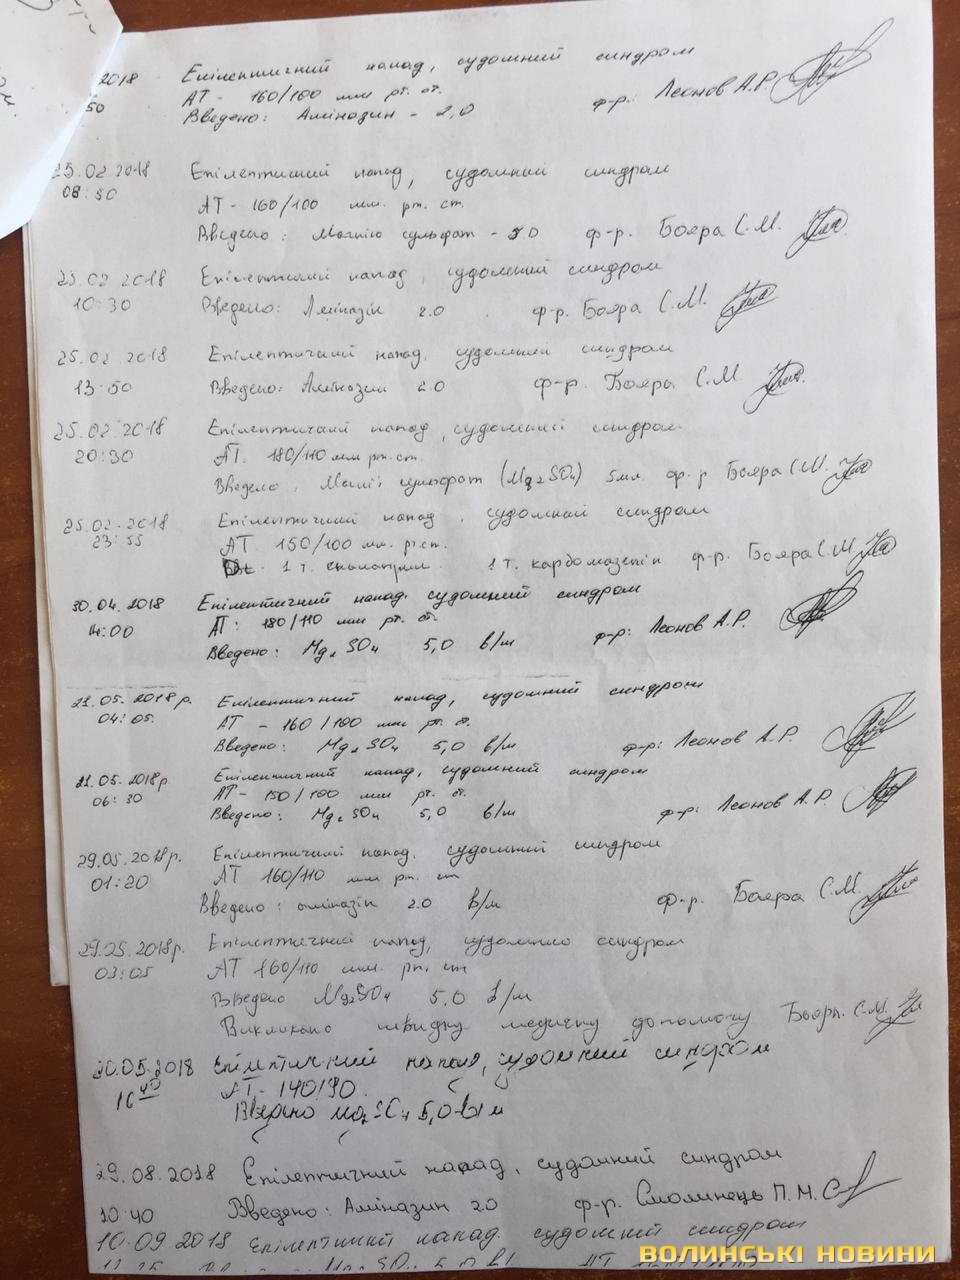 2018 Епілептичний напад, судомний синдром
50 АТ - 160/100 мм рт. ст.
Введено: Аміназин - 2,0 ф-р: Леонов А.Р.
25.02.2018 Епілептичний напад, судомний синдром
08:50
АТ - 160/100 мм. рт. ст.
Введено: Магнію сульфат - 50 ф-р. Бояра С.М.
25.02.2018 Епілептичний напад, судомний синдром
10:30 Введено: Аміназін 2.0 ф-р. Бояра С.М.
25.02.2018 Епілептичний напад, судомний синдром
13:50 Введено: Аміназин 2.0 ф-р. Бояра С.М
25.02.2018 Епілептичний напад, судомний синдром
20:30 АТ. 180/110 мм рт. ст.
Введено. сульфат (Mg2SO4) 5мл. ф-р Бояра С.М.
25.02.2018 Епілептичний напад, судомний синдром
23:55 АТ 150/100 мм. рт. ст.
1 т. 1 т. карбомазепін ф-р. Бояра С.М
30.04.2018 Епілептичний напад. судомний синдром
14:00 АТ: 180/110 мм рт. ст.
Введено: Mg2SO4 5,0 в/м ф-р: Леонов А.Р.
21.05.2018р. Епілептичний напад, судомний синдром
04:05. АТ - 160/100 мм рт. ст.
Введено: Mg2SO4 5,0 в/м ф-р: Леонов А.Р.
21.05.2018р Епілептичний напад, судомний синдром
06:30 АТ - 150/100 мм рт. ст.
Введено: Mg2SO4 5,0 в/м ф-р: Леонов А.Р.
29.05.2018р. Епілептичний напад. судомний синдром
01:20 АТ 160/110 мм рт. ст
Введено: аміназін 2.0 в/м ф-р. Бояра С.М.
29.05.2018р. Епілептичний напад, судомний синдром
03:05 АТ 160/110 мм. рт. ст
Введено Mg2SO4 5,0 в/м
Викликано швидку медичну допомогу Бояра. С.М.
30.05.2018 Епілептичний напад, судомний синдром
16 40 АТ - 140/90.
Введено Mg2SO4 5,0 в/м
29.08.2018 Епілептичний напад, судомний синдром
10:40 Введено: Аміназин 2.0 ф-р. Смолинець П.М.
10.09.2018 Епілептичний напад. судомний синдром
ВОЛИНСЬКІ НОВИНИ